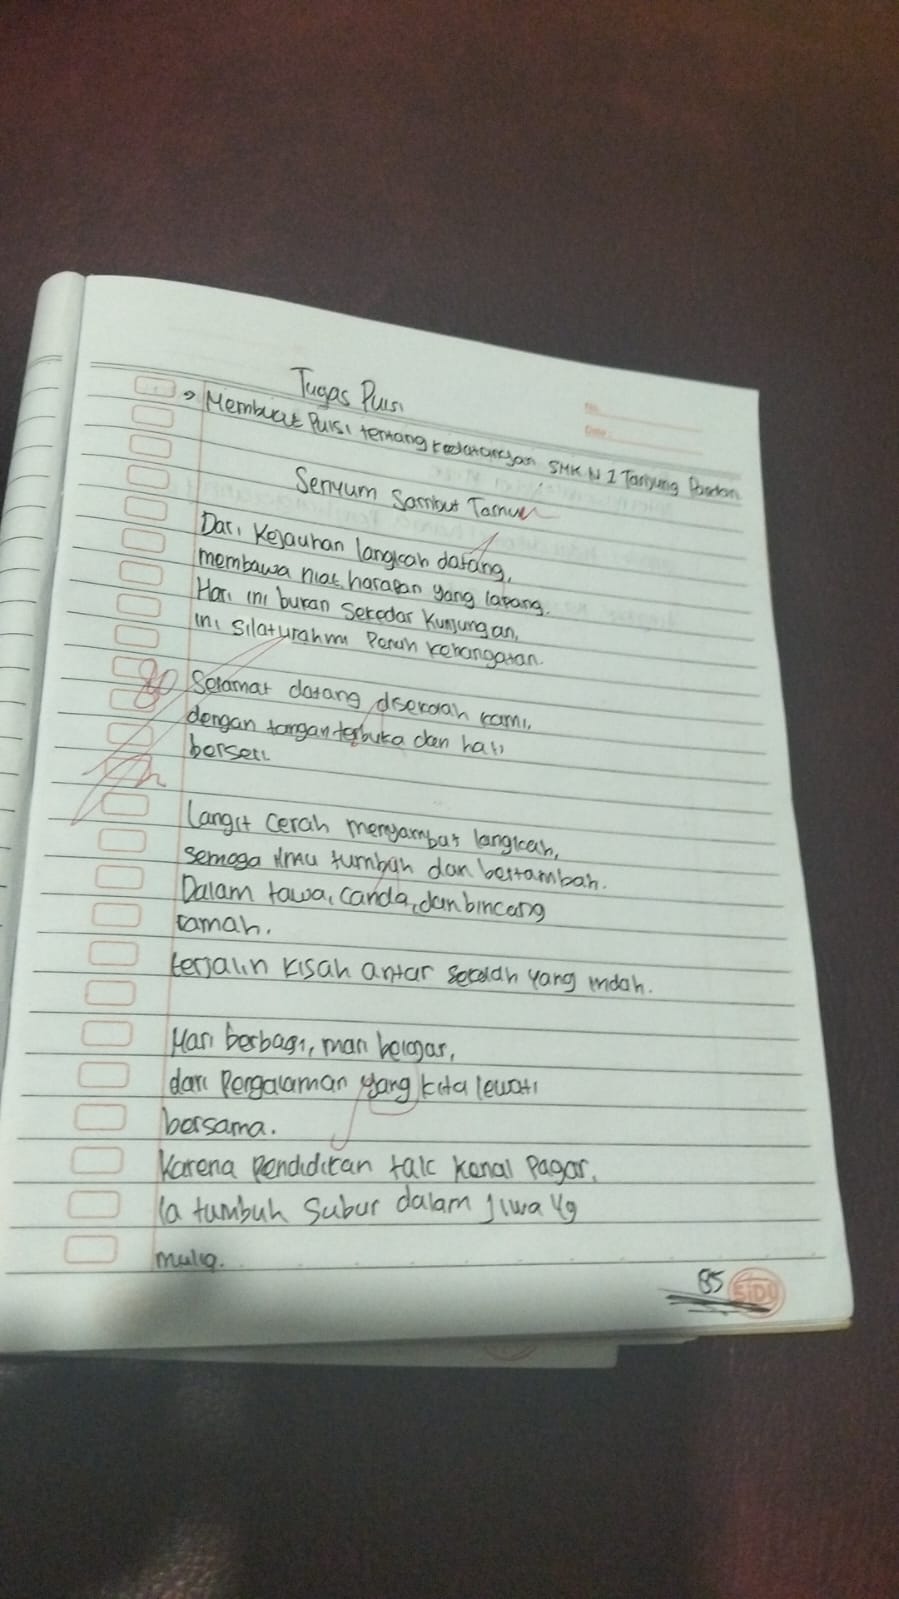 Tugas Puisi
→ Membuat Puisi tentang kedatangan SMK N 1 Tanjung Pandan
Senyum Sambut Tamu
Dari Kejauhan langkah datang,
membawa niat harapan yang lapang.
Hari ini bukan sekedar Kunjungan,
ini silaturahmi Penuh kehangatan.
80
Selamat datang disekolah kami,
dengan tangan terbuka dan hati
berseri.
Langit Cerah menyambut langkah,
semoga ilmu tumbuh dan bertambah.
Dalam tawa, canda, dan bincang
ramah.
terjalin kisah antar sekolah yang indah.
Mari berbagi, mari belajar,
dari Pengalaman yang kita lewati
bersama.
Karena Pendidikan tak kenal Pagar,
ia tumbuh Subur dalam jiwa yg
mulia.
85
SiDU